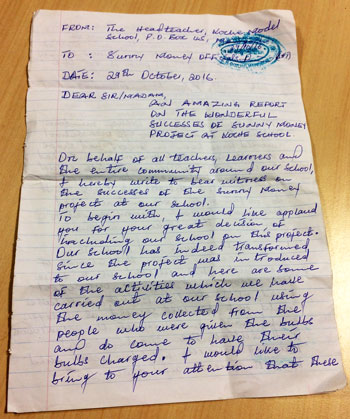 FROM: The Headteacher, Koche Model
School, P.O. Box 115,
TO : Sunny Money
DATE: 28th October, 2016.
DEAR SIR/MADAM,
AN AMAZING REPORT
ON THE WONDERFUL
SUCCESSES OF SUNNY MONEY
PROJECT AT KOCHE SCHOOL
On behalf of all teachers, learners and
the entire community around our school,
I hereby write to bear witness on
the successes of the Sunny Money
project at our school.
To begin with, I would like applaud
you for your great decision of
including our school on this project.
Our school has indeed transformed
since the project was introduced
to our school and here are some
of the activities which we have
carried out at our school using
the money collected from the
people who were given the bulbs
and do come to have their
bulbs charged. I would like to
bring to your attention that these